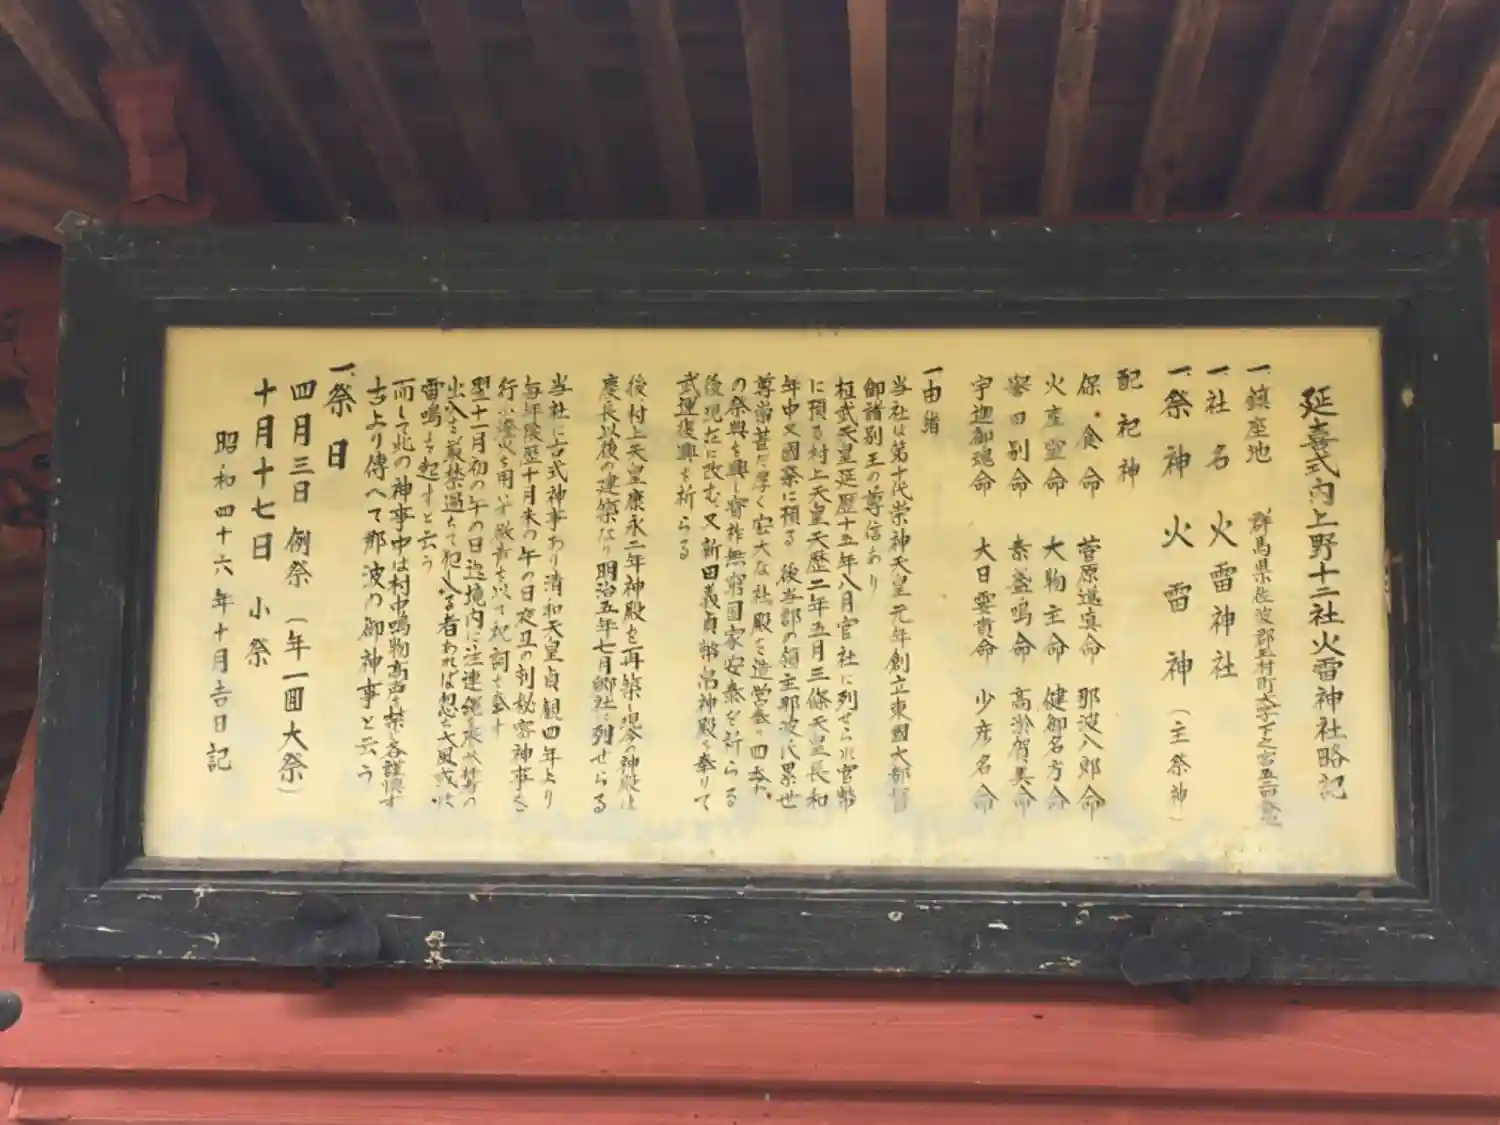 延喜式内上野十二社火雷神社略記
一、鎮座地 群馬県佐波郡玉村町大字下之宮
一、社名 火雷神社
一、祭神 火雷神（主祭神）
配祀神
保食命 菅原道真命 那波八郎命
火産霊命 大物主命 健御名方命
誉田別命 素盞嗚命 高淤賀美命
宇迦御魂命 大日孁貴命 少彦名命
一、由緒
当社は第十代崇神天皇元年創立東國大都督
御諸別王の尊信あり
桓武天皇延歴十五年八月官社に列せられ官幣
に預る村上天皇天歴二年五月三條天皇長和
年中又國祭に預る 後当郡の領主那波氏累世
尊崇甚だ厚く宏大な社殿を造営し
の祭典を興し宝祚無窮国家安泰を祈らる
後現在に改む 又新田義貞幣帛神殿を奉りて
武運復興を祈らる
後村上天皇康永二年神殿を再築し現今の神殿は
慶長以後の建築なり明治五年七月郷社に列せらる
当社に古式神事あり清和天皇貞観四年より
毎年陰歴十月末の午の日夜丑の刻秘密神事を
行い燈火を用い を以て祝詞を奏す
翌十一月初の午の日迄境内に注連縄を
出入を厳禁過って犯し入る者あれば忽ち大風或は
雷鳴を起すと云う
而して此の神事中は村中鳴物高声を禁じ各謹慎す
古より傳へて那波の御神事と云う
一、祭日
四月三日 例祭（年一回大祭）
十月十七日 小祭
昭和四十六年十月吉日記